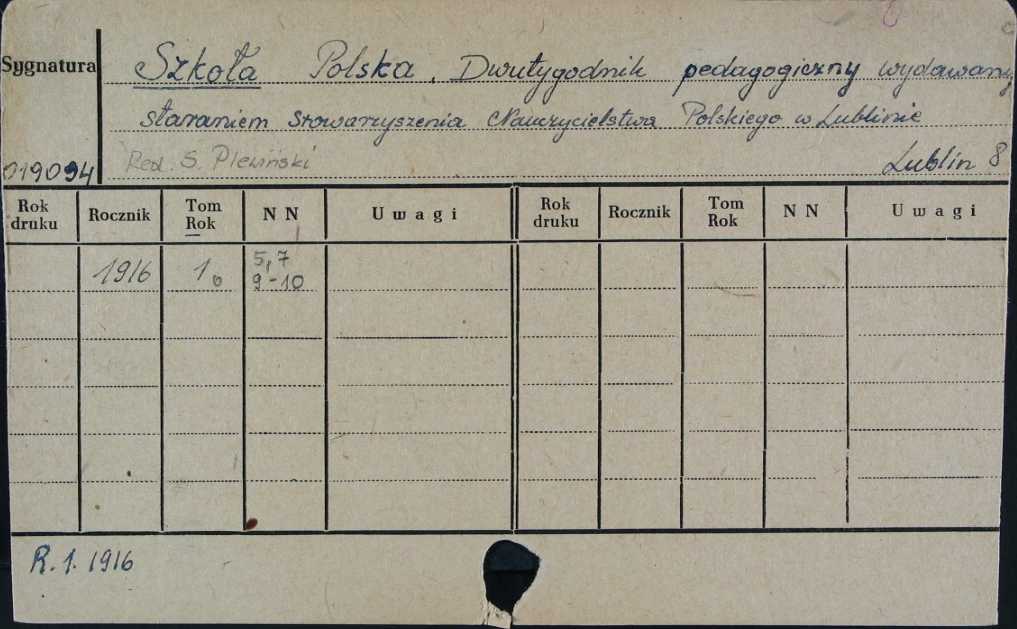 Sygnatura
Szkoła Polska. Dwutygodnik pedagogiczny wydawany
staraniem Stowarzyszenia Nauczycielstwa Polskiego w Lublinie
019094 Red. S. Plewiński Lublin 8
Rok druku Rocznik Tom Rok N N Uwagi Rok druku Rocznik Tom Rok N N Uwagi
1916 1. 5,7
9-10
R. 1. 1916